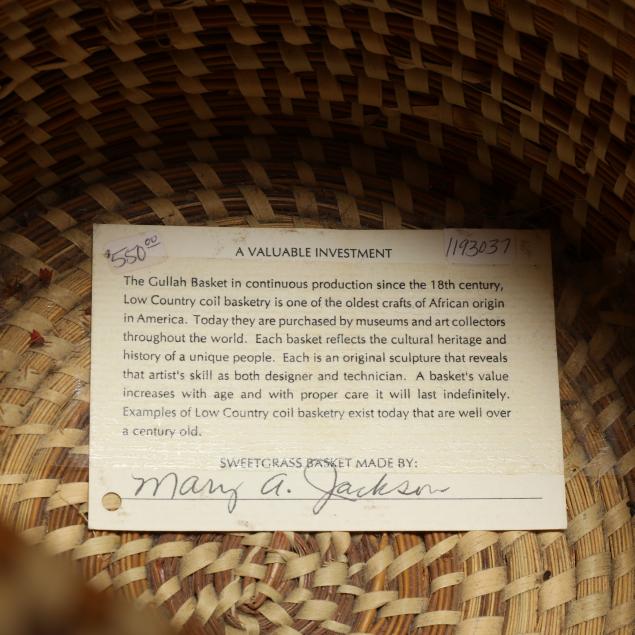 $550.00
A VALUABLE INVESTMENT
1193037
The Gullah Basket in continuous production since the 18th century,
Low Country coil basketry is one of the oldest crafts of African origin
in America. Today they are purchased by museums and art collectors
throughout the world. Each basket reflects the cultural heritage and
history of a unique people. Each is an original sculpture that reveals
that artist's skill as both designer and technician. A basket's value
increases with age and with proper care it will last indefinitely.
Examples of Low Country coil basketry exist today that are well over
a century old.
SWEETGRASS BASKET MADE BY:
Mary A. Jackson